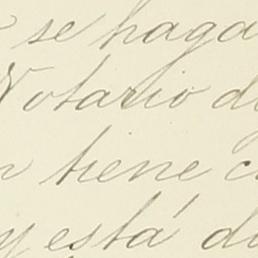 se haga
Notario d
n tiene c
y está d